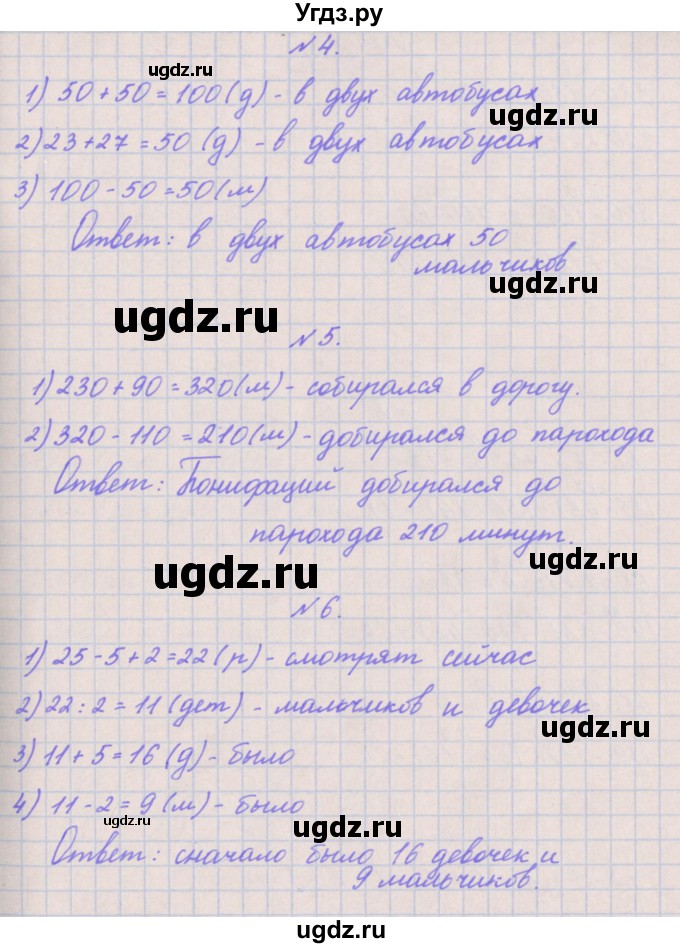 Угдз.ру
№4.
ugdz.ru
1) 50 + 50 = 100 (д) - в двух автобусах
ugdz.ru
2) 23 + 27 = 50 (д) - в двух автобусах
3) 100 - 50 = 50 (м)
ugdz.ru
Ответ: в двух автобусах 50
мальчиков
ugdz.ru
ugdz.ru
№5.
1) 230 + 90 = 320 (м) - собирался в дорогу.
ugdz.ru
2) 320 - 110 = 210 (м) - добирался до парохода
Ответ: Бонифаций добирался до
парохода 210 минут.
ugdz.ru
ugdz.ru
№6.
1) 25 - 5 + 2 = 22 (р) - смотрят сейчас
2) 22 : 2 = 11 (дет) - мальчиков и девочек
ugdz.ru
3) 11 + 5 = 16 (д) - было
4) 11 - 2 = 9 (м) - было
ugdz.ru
ugdz.ru
Ответ: сначало было 16 девочек и
9 мальчиков.
ugdz.ru